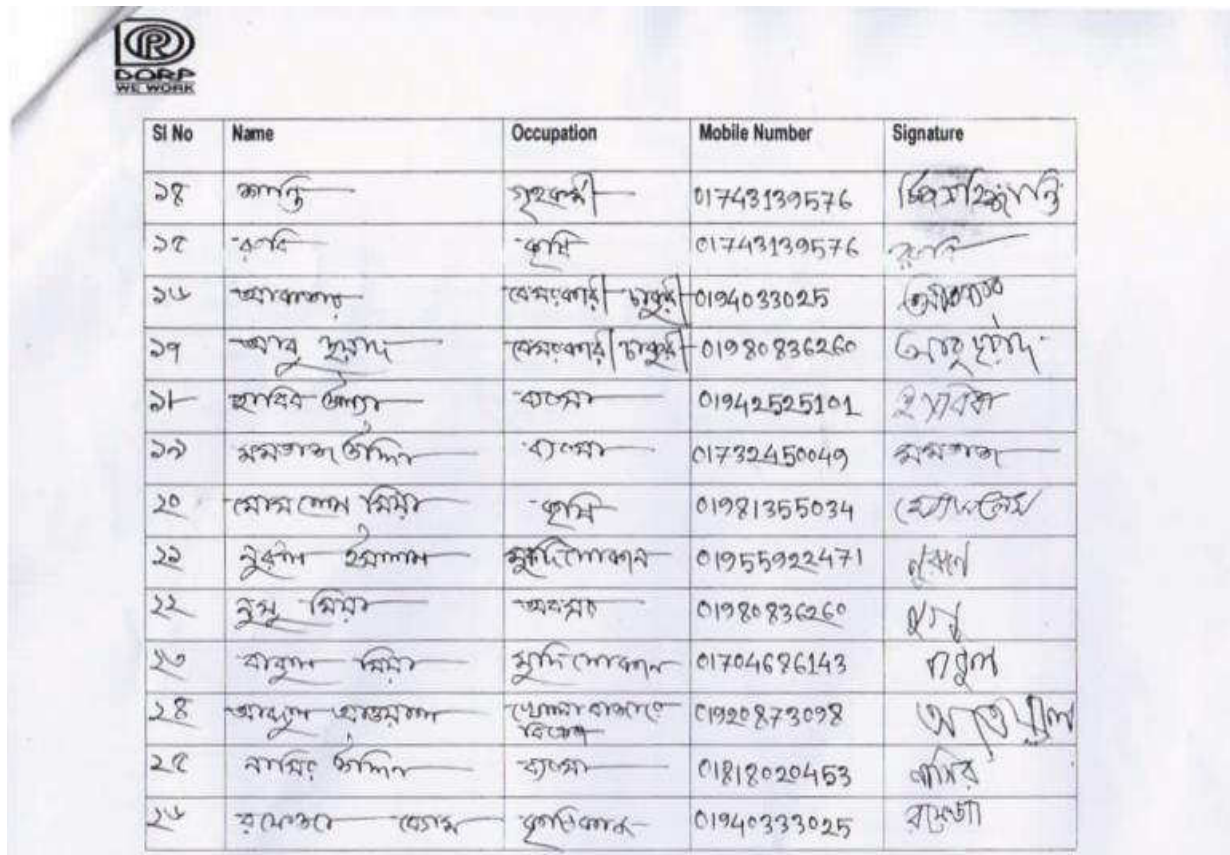 DORP
WE WORK
Sl No Name Occupation Mobile Number Signature
১৪ শান্তি গৃহকর্মী 01743139576
১৫ রুবি কৃষি 01743139576 রুবি
১৬ আকতার বেসরকারী চাকুরী 0194033025 আকতার
১৭ আবু মুরাদ বেসরকারী চাকুরী 01980836260 আবু মুরাদ
১৮ হাবিব উল্যা ব্যবসা 01942525101
১৯ মমতাজ উদ্দিন ব্যবসা 01732450049 মমতাজ
২০ মোসলেম মিয়া কৃষি 01981355034 মোসলেম
২১ নুরুল ইসলাম মুদি দোকান 01955922471 নুরুল
২২ নুনু মিয়া অবসর 01980836260 নুনু
২৩ বাবুল মিয়া মুদি দোকান 01704686143 বাবুল
২৪ আবদুল আওয়াল খোলা বাজারে
বিক্রেতা 01920873098
২৫ নাসির উদ্দিন ব্যবসা 01818020453 নাসির
২৬ বেগম 01940333025